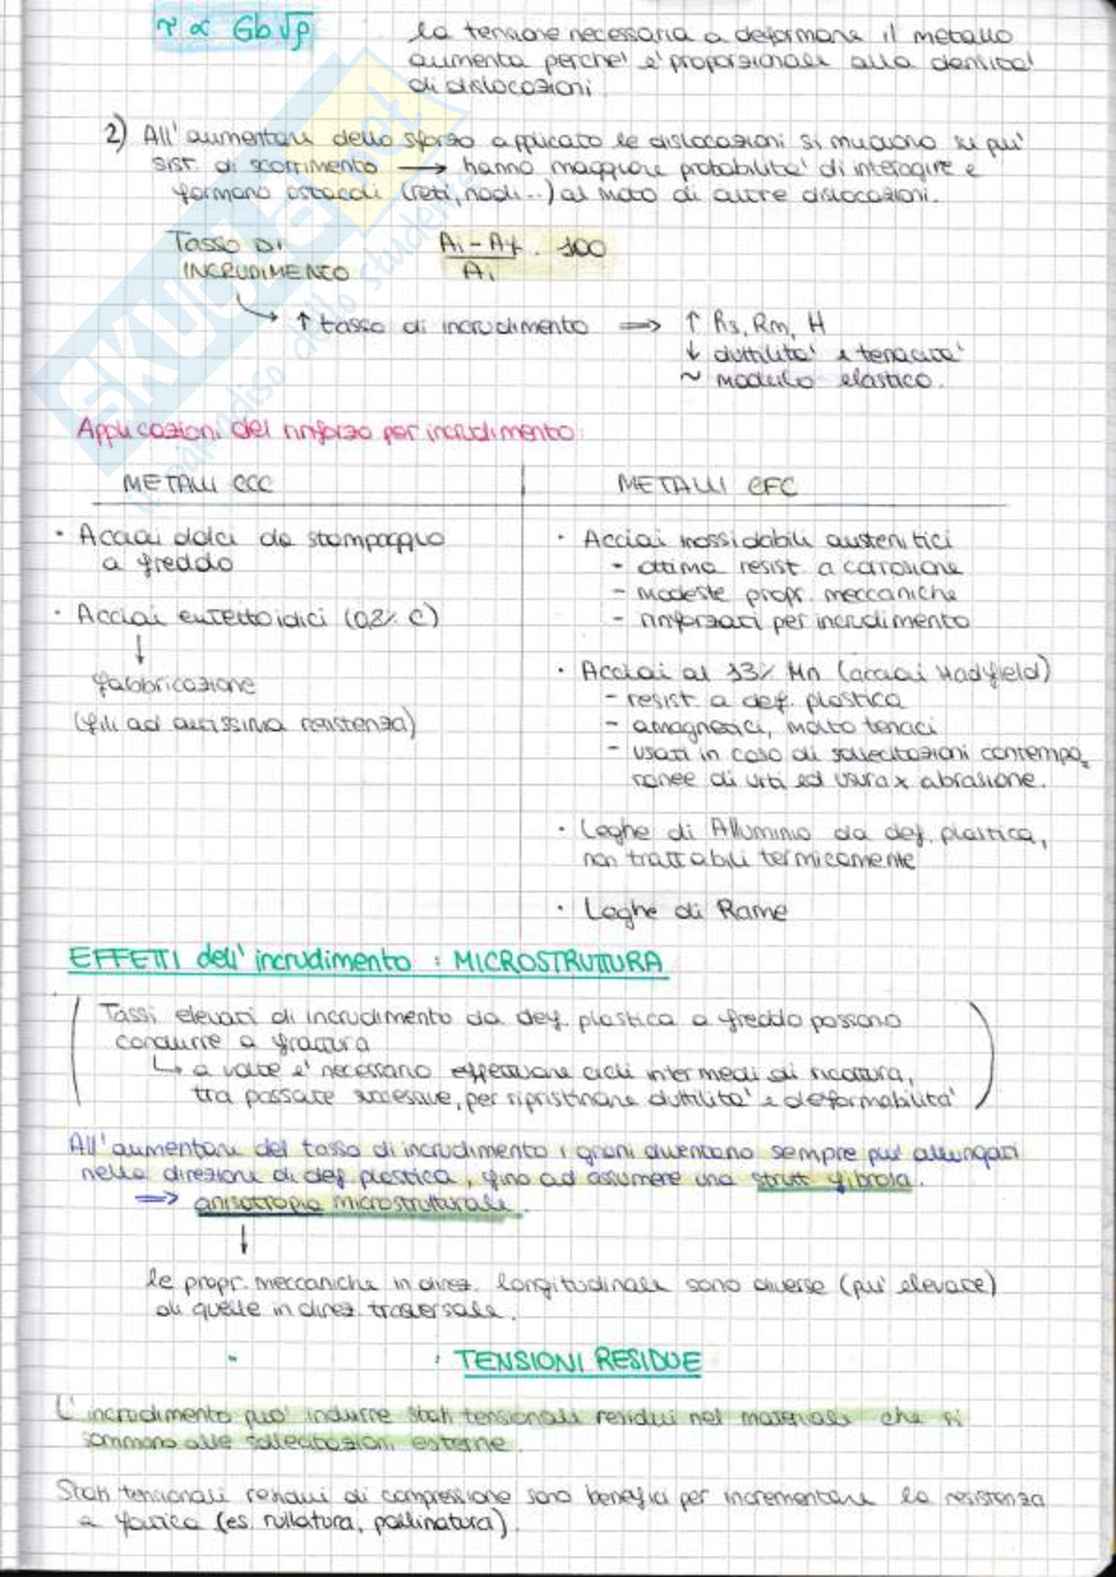 τ ∝ Gb√ρ
la tensione necessaria a deformare il metallo
aumenta perche' e' proporzionale alla densita'
di dislocazioni.
2) All'aumentare dello sforzo applicato le dislocazioni si muovono su piu'
sist. di scorrimento → hanno maggiore probabilita' di interagire e
formano ostacoli (reti, nodi...) al moto di altre dislocazioni.
TASSO DI
INCRUDIMENTO
Ai - Af · 100
Ai
↑ tasso di incrudimento ⇒ ↑ Rs, Rm, H
↓ duttilita' e tenacita'
~ modulo elastico.
Applicazioni del rinforzo per incrudimento:
METALLI CCC
METALLI CFC
· Acciai dolci da stampaggio
a freddo
· Acciai eutettoidici (0,8% C)
↓
fabbricazione
(fili ad altissima resistenza)
· Acciai inossidabili austenitici
- ottima resist. a corrosione
- modeste propr. meccaniche
- rinforzati per incrudimento
· Acciai al 13% Mn (acciai Hadfield)
- resist. a def. plastica
- amagnetici, molto tenaci
- usati in caso di sollecitazioni contempo=
ranee di urti ed usura x abrasione.
· Leghe di Alluminio da def. plastica,
non trattabili termicamente
· Leghe di Rame
EFFETTI dell'incrudimento : MICROSTRUTTURA
Tassi elevati di incrudimento da def. plastica a freddo possono
condurre a frattura
↳ a volte e' necessario effettuare cicli intermedi di ricottura,
tra passate successive, per ripristinare duttilita' e deformabilita'
All'aumentare del tasso di incrudimento i grani diventano sempre piu' allungati
nella direzione di def. plastica, fino ad assumere una strutt. fibrosa.
⇒ anisotropia microstrutturale.
↓
le propr. meccaniche in direz. longitudinale sono diverse (piu' elevate)
di quelle in direz. trasversale.
: TENSIONI RESIDUE
L'incrudimento puo' indurre stati tensionali residui nel materiale che si
sommano alle sollecitazioni esterne.
Stati tensionali residui di compressione sono benefici per incrementare la resistenza
a fatica (es. rullatura, pallinatura).
SKUOLA.net
il paradiso dello studente